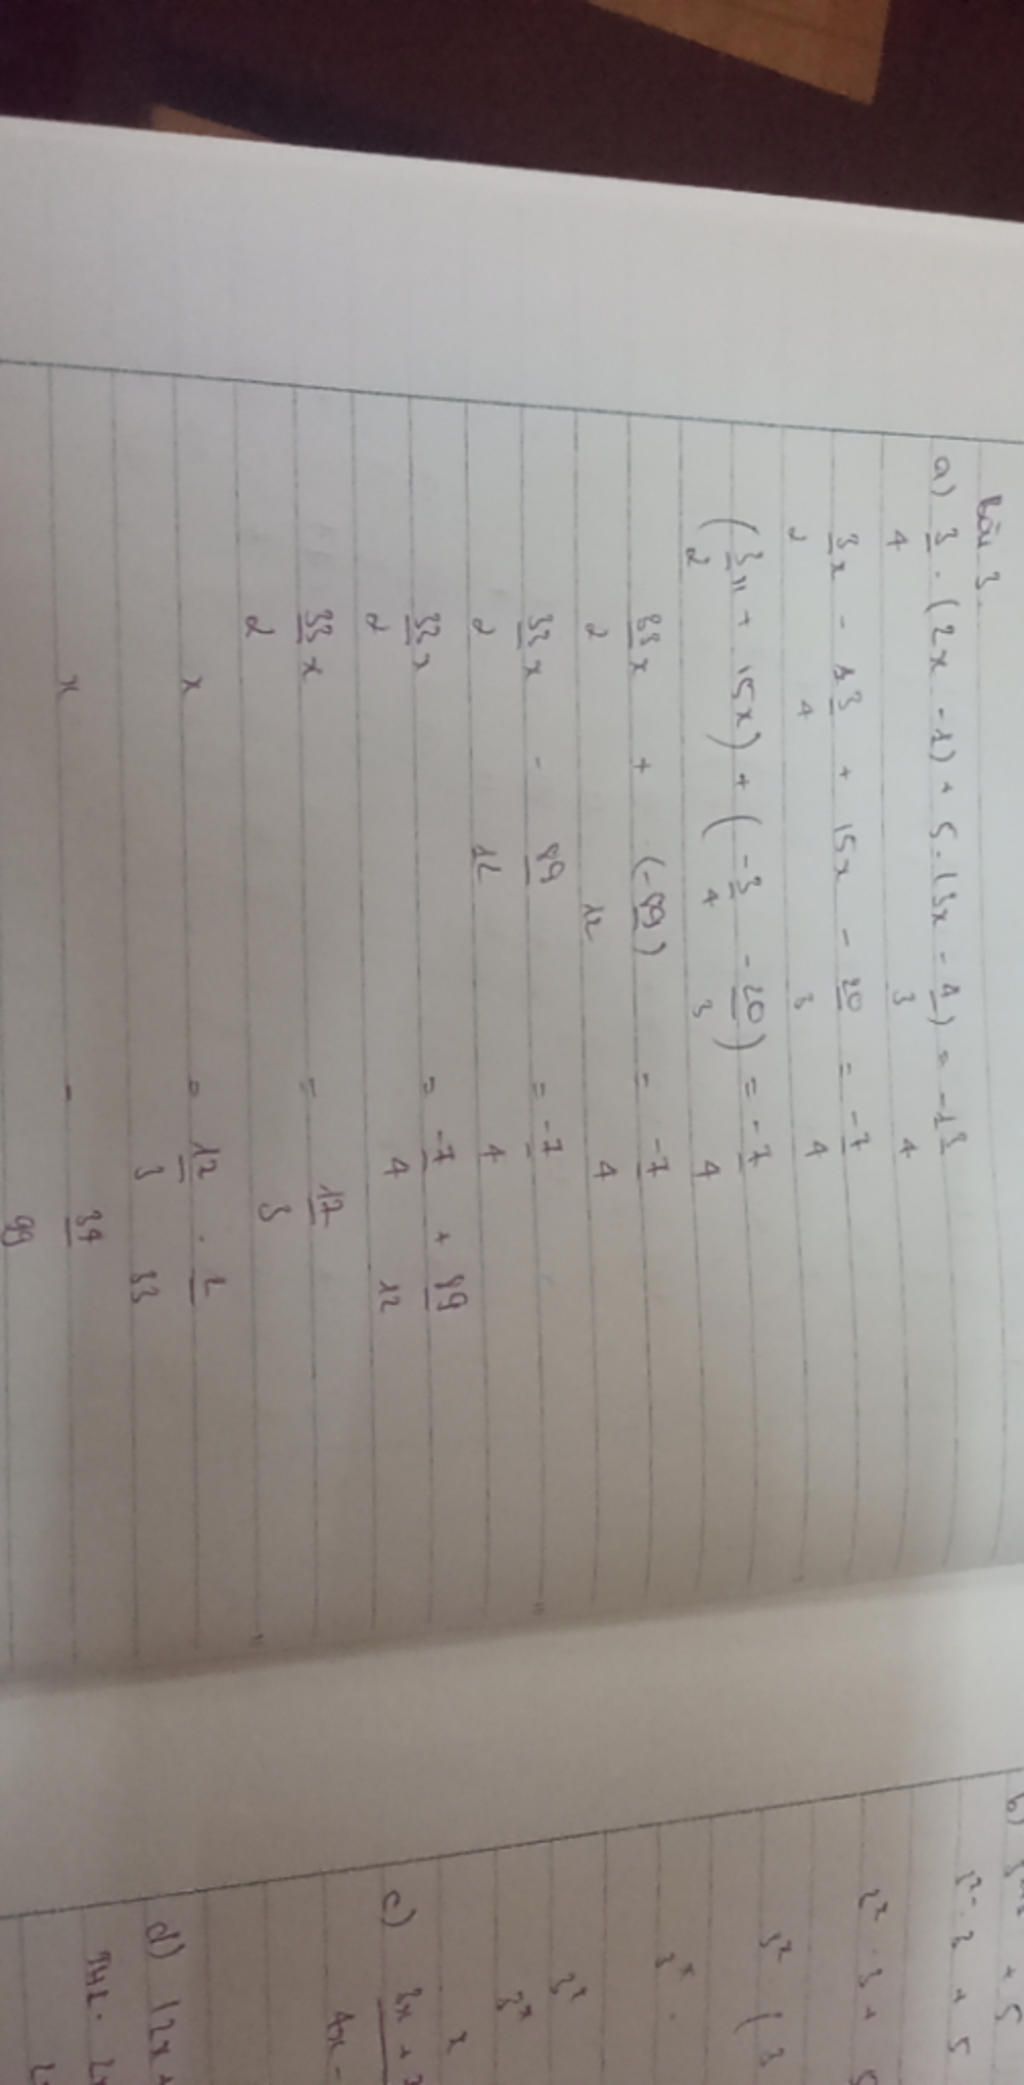 Bài 3.
a) 3/4 . (2x - 1) + 5. (3x - 4/3) = -1 3/4
3/2 x - 3/4 + 15x - 20/3 = -7/4
(3/2 x + 15x) + (-3/4 - 20/3) = -7/4
33/2 x + (-89/12) = -7/4
33/2 x - 89/12 = -7/4
33/2 x = -7/4 + 89/12
33/2 x = 17/3
x = 17/3 . 2/33
x = 34/99
b)
+ 5
3² . 3 + 5
3² (3
3ˣ .
3ˣ
x
c) 3x +
4x -
d) 12x +
TH1. 2x